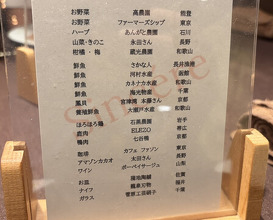 お野菜 高農園 能登
お野菜 ファーマーズショップ 東京
ハーブ あんがと農園 石川
山菜・きのこ 永田さん 長野
柑橘・梅 蔵光農園 和歌山
鮮魚 さかな人 長井漁港
鮮魚 河村水産 函館
鮮魚 カネナカ水産 和歌山
鮮魚 海光物産 千葉
鳶貝 官津湾 本藤さん 京都
養殖鮮魚 大瀬戸水産 和歌山
ほろほろ鶏 石黒農園 岩手
鹿肉 ELEZO 帯広
鴨肉 七谷鴨 京都
珈琲 カフェ ファソン 東京
アマゾンカカオ 太田さん 長野
ワイン ポーペイサージュ 山梨
お皿 佐賀
ナイフ 龍泉刃物 福井
ガラス 菅原工芸硝子 千葉